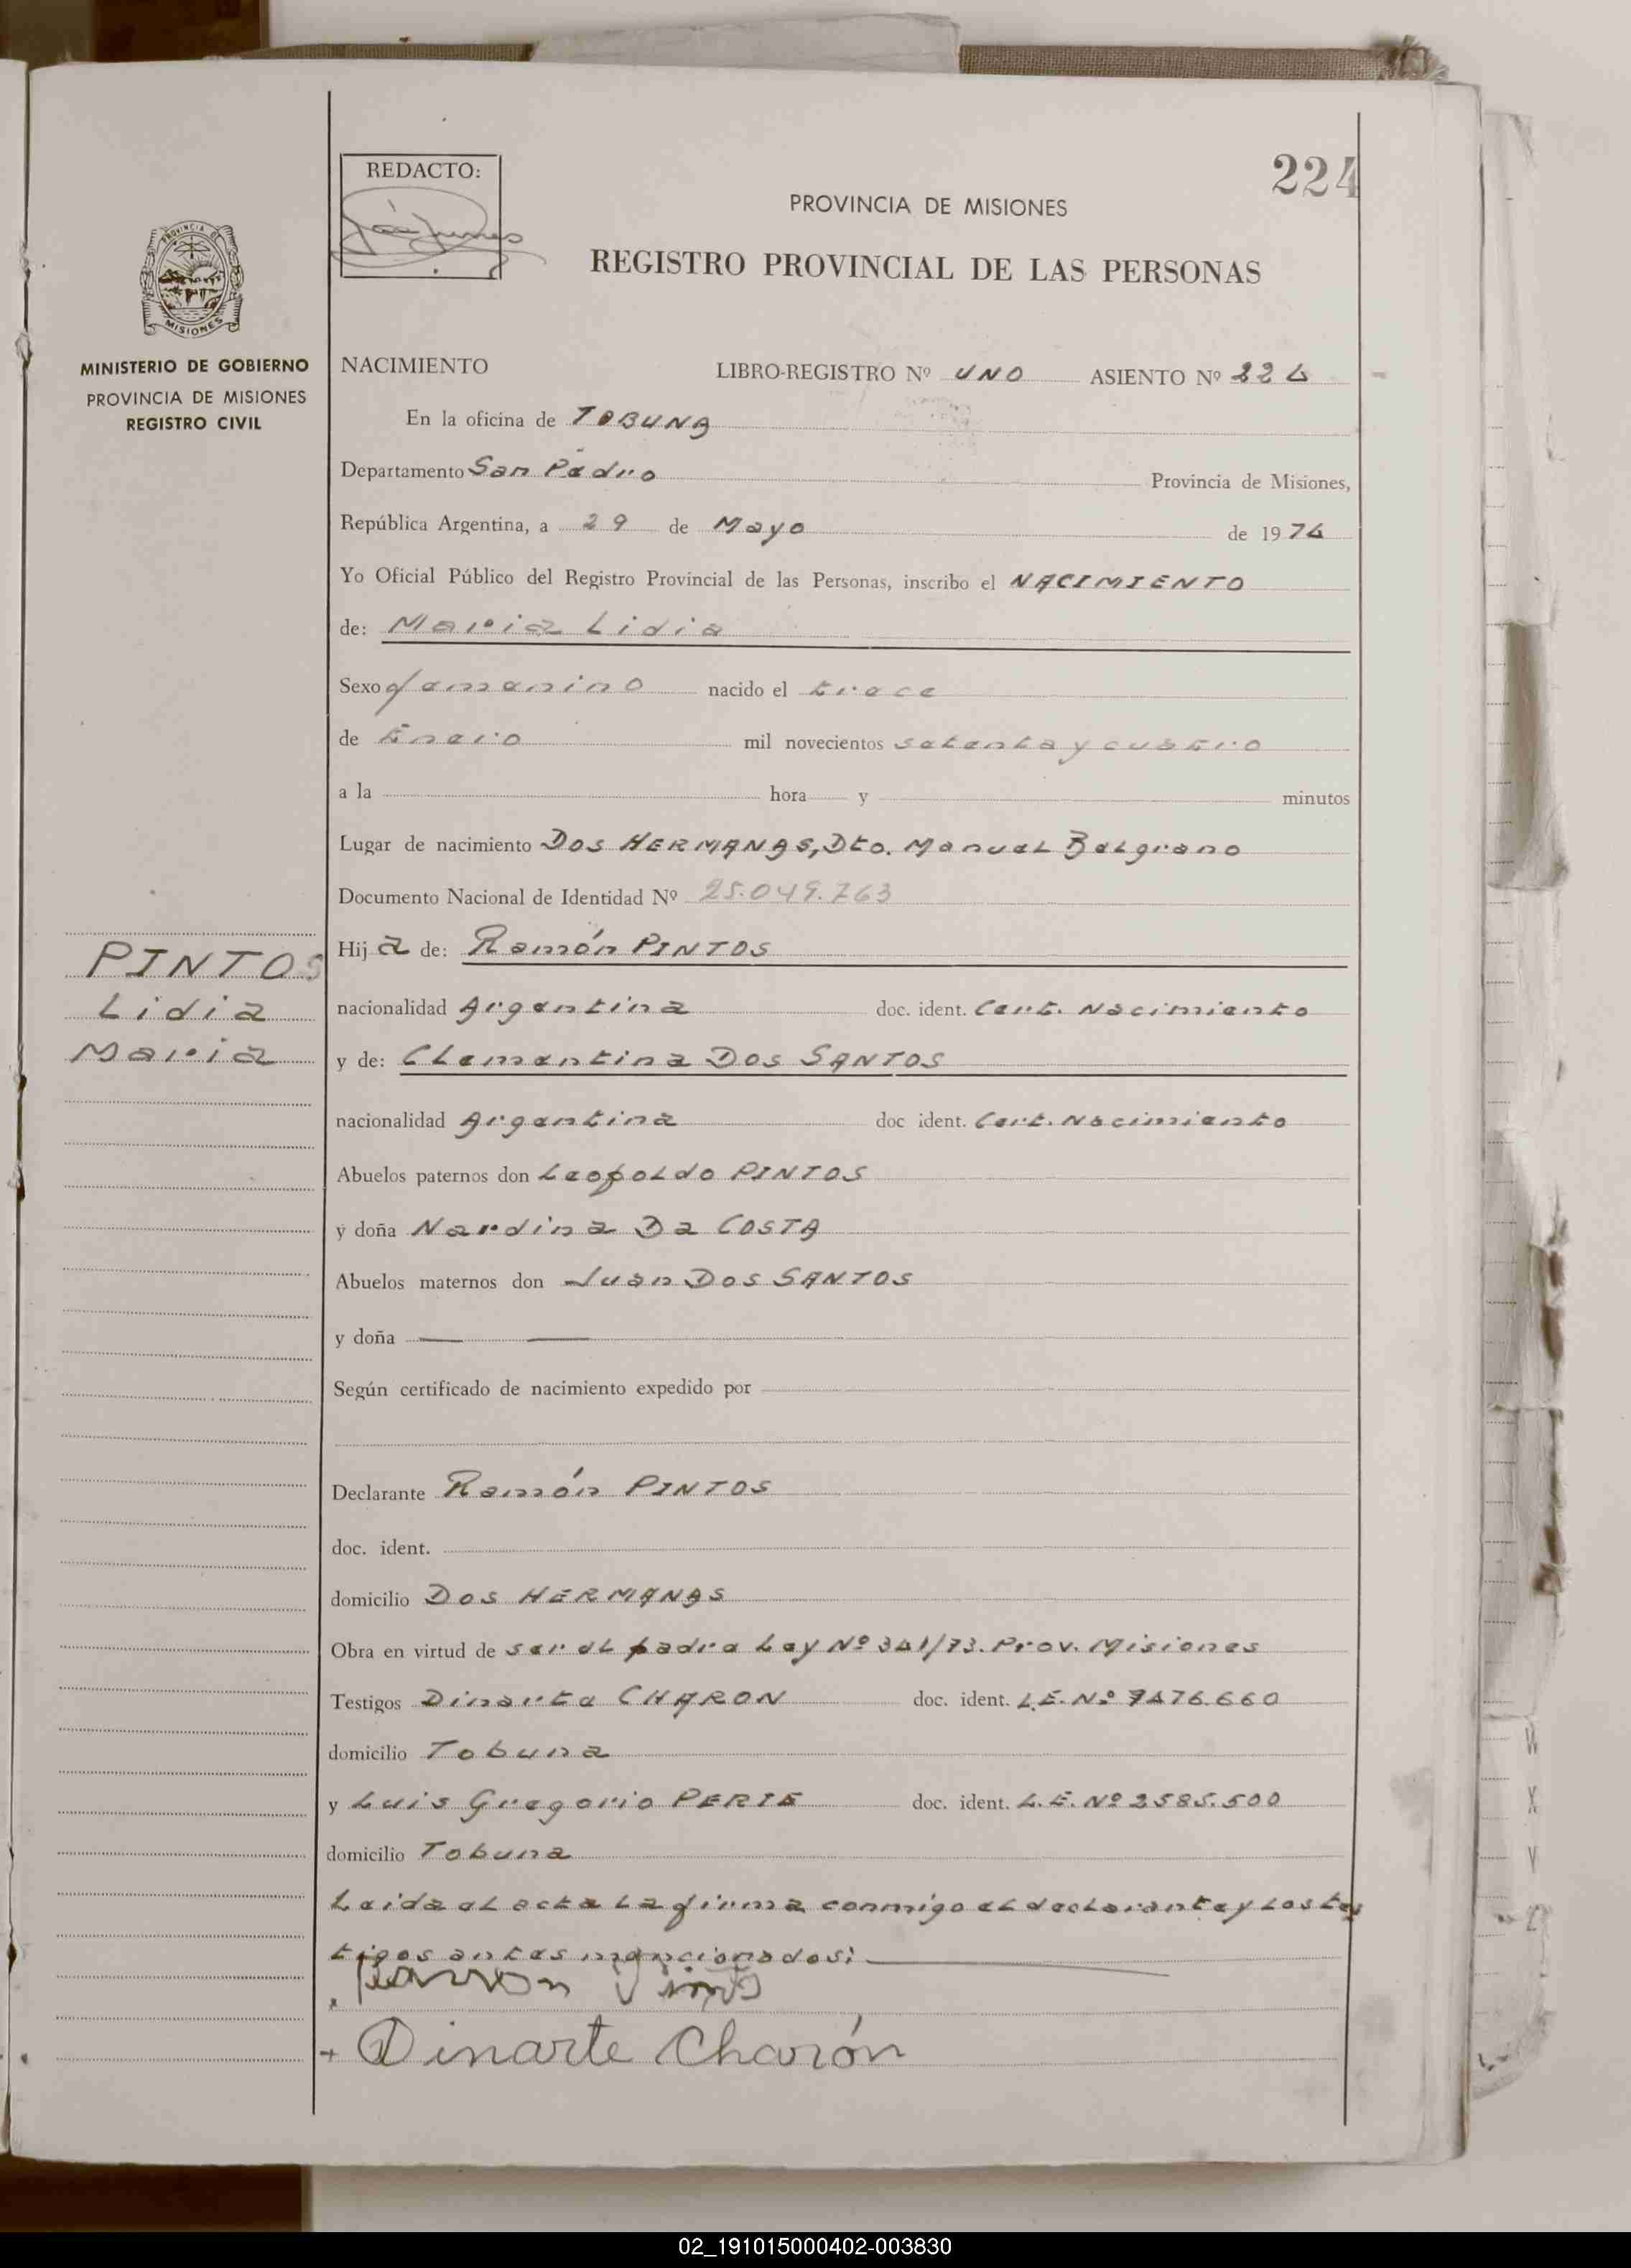 224
REDACTO:
PROVINCIA DE MISIONES
REGISTRO PROVINCIAL DE LAS PERSONAS
PROVINCIA DE
MISIONES
MINISTERIO DE GOBIERNO
PROVINCIA DE MISIONES
REGISTRO CIVIL
NACIMIENTO LIBRO-REGISTRO Nº UNO ASIENTO Nº 224
En la oficina de TOBUNA
Departamento San Pedro Provincia de Misiones,
República Argentina, a 29 de Mayo de 1974
Yo Oficial Público del Registro Provincial de las Personas, inscribo el NACIMIENTO
de: Maria Lidia
Sexo femenino nacido el trece
de Enero mil novecientos setenta y cuatro
a la hora y minutos
Lugar de nacimiento DOS HERMANAS, Dto. Manuel Belgrano
Documento Nacional de Identidad Nº 25.049.763
PINTOS
Lidia
Maria
Hija de: Ramón PINTOS
nacionalidad Argentina doc. ident. Cert. Nacimiento
y de: Clementina DOS SANTOS
nacionalidad Argentina doc ident. Cert. Nacimiento
Abuelos paternos don Leopoldo PINTOS
y doña Nardina Da COSTA
Abuelos maternos don Juan DOS SANTOS
y doña — —
Según certificado de nacimiento expedido por
Declarante Ramón PINTOS
doc. ident.
domicilio DOS HERMANAS
Obra en virtud de ser el padre Ley Nº 341/73. Prov. Misiones
Testigos Dinarte CHARON doc. ident. L.E. Nº 7476.660
domicilio Tobuna
y Luis Gregorio PERIE doc. ident. L.E. Nº 2585.500
domicilio Tobuna
Leida el acta la firma conmigo el declarante y los tes
tigos antes mencionados:
x Ramon Pintos
+ Dinarte Charón
W
X
Y
Z
02_191015000402-003830